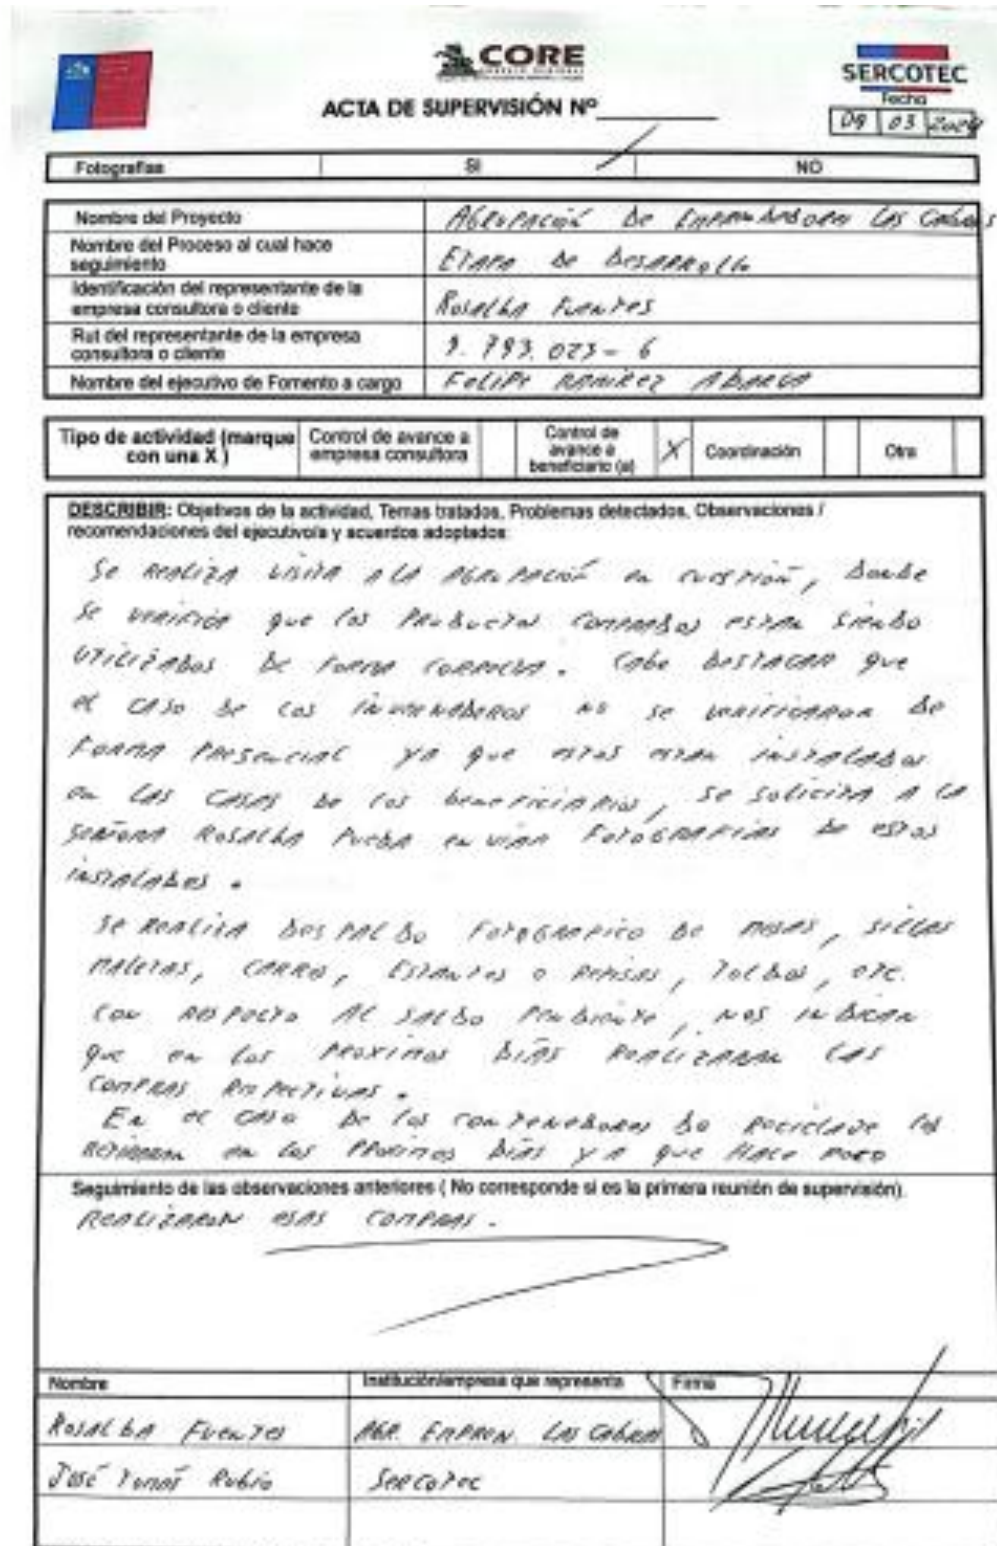 CORE
SERCOTEC
Fecha
ACTA DE SUPERVISIÓN Nº
09 03
Fotografías SI / NO
Nombre del Proyecto AGRUPACIÓN DE LAS CABRAS
Nombre del Proceso al cual hace seguimiento ETAPA DE DESARROLLO
Identificación del representante de la empresa consultora o cliente ROSALBA FUENTES
Rut del representante de la empresa consultora o cliente 9.793.023-6
Nombre del ejecutivo de Fomento a cargo FELIPE RAMIREZ ABARCA
Tipo de actividad (marque con una X ) Control de avance a empresa consultora Control de avance a beneficiario (a) X Coordinación Otra
DESCRIBIR: Objetivos de la actividad, Temas tratados, Problemas detectados, Observaciones /
recomendaciones del ejecutivo/a y acuerdos adoptados:
SE REALIZA VISITA A LA AGRUPACIÓN EN CUESTIÓN, DONDE
SE VERIFICA QUE LOS PRODUCTOS COMPRADOS ESTAN SIENDO
UTILIZADOS DE FORMA CORRECTA. CABE DESTACAR QUE
EL CASO DE LOS INVERNADEROS NO SE VERIFICARON DE
FORMA PRESENCIAL YA QUE ESTOS ESTAN INSTALADOS
EN LAS CASAS DE LOS BENEFICIARIOS, SE SOLICITA A LA
SEÑORA ROSALBA PUEDA ENVIAR FOTOGRAFIAS DE ESTOS
INSTALADOS.
SE REALIZA FOTOGRAFICO DE MESAS, SILLAS
MALETAS, CARRO, ESTANTES O REPISAS, TOLDOS, ETC.
CON RESPECTO AL SALDO PENDIENTE, NOS INDICAN
QUE EN LOS PROXIMOS DIAS REALIZARAN LAS
COMPRAS RESPECTIVAS.
EN EL CASO DE LOS CONTENEDORES DE RECICLAJE LOS
RETIRARAN EN LOS PROXIMOS DIAS YA QUE HACE POCO
Seguimiento de las observaciones anteriores ( No corresponde si es la primera reunión de supervisión).
REALIZARON ESAS COMPRAS.
Nombre Institución/empresa que representa Firma
ROSALBA FUENTES AGR. EMPREN. LAS CABRAS
JOSÉ TOMÁS RUBIO SERCOTEC